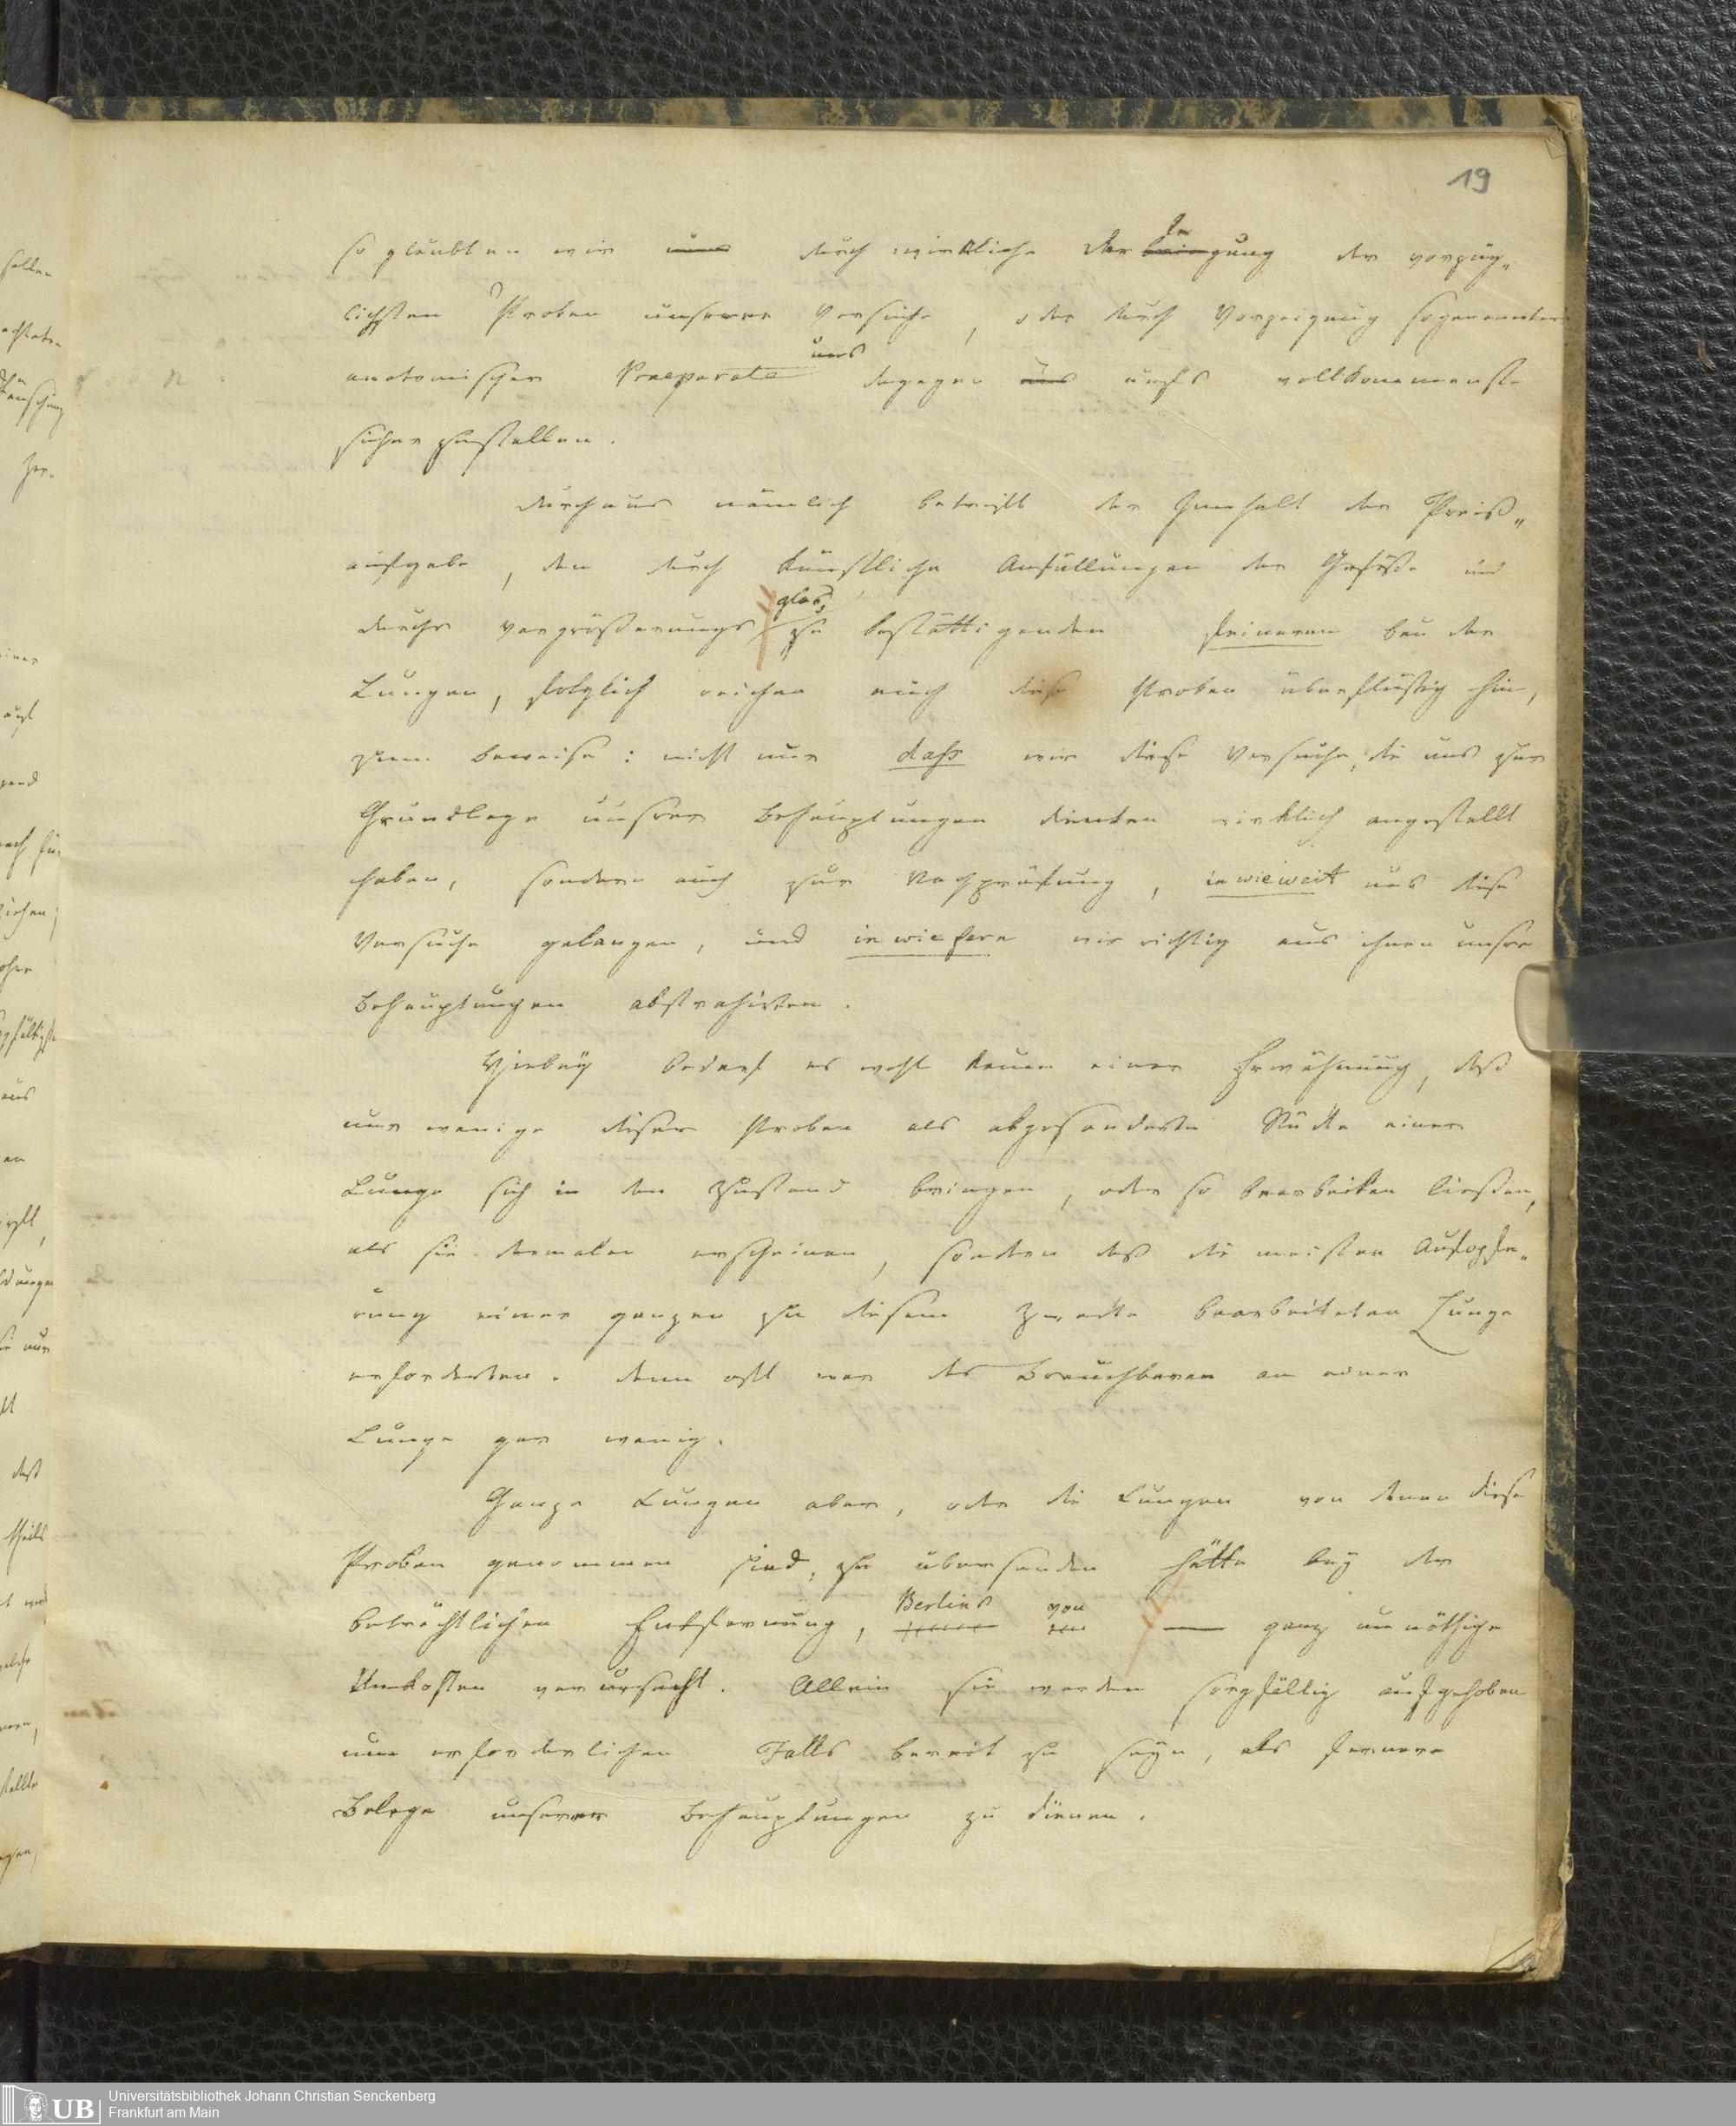 19
so glaubten wir durch wirkliche Darlegung der vorzüg„
lichsten Proben unserer Versuche, oder durch Vorzeigung sogenannter
anatomischer Praeparate uns dagegen aufs vollkommenste
sicher zu stellen.
Durchaus nämlich betrifft der Innhalt der Preiß„
aufgabe, den durch künstliche Anfüllungen der Gefäße und
durchs Vergrößerungsglas, zu bestättigenden feineren Bau der
Lungen, folglich reichen auch diese Proben überflüßig hin,
zum Beweise: nicht nur daſs wir diese Versuche, die uns zur
Grundlage unsrer Behauptungen dienten wirklich angestellt
haben, sondern auch zur Nachprüfung, in wie weit uns diese
Versuche gelangen, und in wie fern wir richtig aus ihnen unsre
Behauptungen abstrahirten.
Hiebey bedarf es wohl kaum einer Erwähnung, daß
nur wenige dieser Proben als abgesonderte Stücke einer
Lunge sich in den Zustand bringen, oder so bearbeiten ließen,
als sie dermalen erscheinen, sondern daß die meisten Aufopfe„
rung einer ganzen zu diesem Zwecke bearbeiteten Lunge
erforderten. Denn oft war des Brauchbaren an einer
Lunge gar wenig.
Ganze Lungen aber, oder die Lungen von denen diese
Proben genommen sind, zu übersenden hätte bey der
beträchtlichen Entfernung, Berlins von ganz unnöthige
Unkosten verursacht. Allein sie werden sorgfältig aufgehoben
um erforderlichen Falls bereit zu seyn, als fernere
Belege unserer Behauptungen zu dienen.
UB
Universitätsbibliothek Johann Christian Senckenberg
Frankfurt am Main